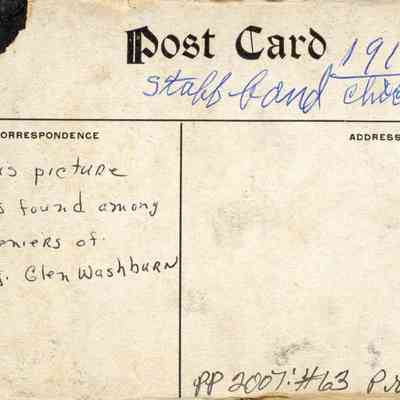 Post Card
191
Staff band Chic
CORRESPONDENCE
ADDRESS
is picture
s found among
eniers of
. Glen Washburn
PP 2007:#63 Pr